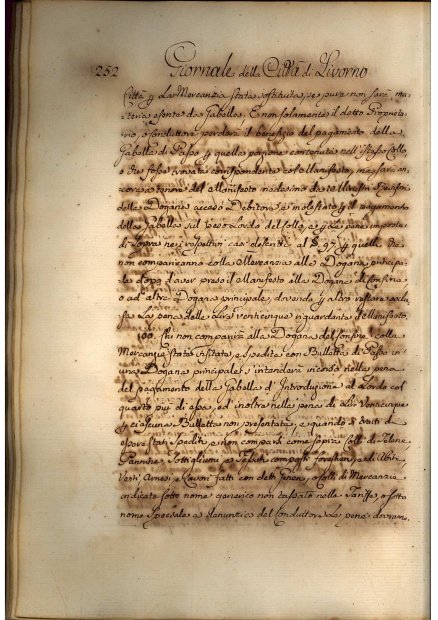 252 Giornale della Città di Livorno
Città p. La Mercanzia stata sostituita, se pure non sarà ma
teria esente da Gabella. E non solamente il detto Proprieta
rio, o conduttore perderà il benefizio del pagamento della
Gabella di Passo p. quella porzione contenuta nell'istesso Collo,
o che fosse trovata corrispondente col Manifesto, ma sarà an
cora a tenore del Manifesto medesimo dai Ministri
della Dogana acceso Debitore, e molestato p. il pagamento
della Gabella sul peso Lordo del Collo, e p. le pene imposte
di sopra nei rispettivi casi
non compariranno colla Mercanzia alla Dogana principa
le dopo d'aver preso il Manifesto alla Dogana di confine
o ad altra Dogana principale, dovendo p. altro restare esclu
sa La pena delle Lire venticinque riguardante il Manifesto
100. Chi non comparirà alla Dogana del confine colla
Mercanzia stata visitata, e spedita con Bulletta di Passo in
una Dogana principale s'intenderà incorso nella pena
del pagamento della Gabella d'Introduzione al Lordo col
quarto più di essa, ed inoltre nella pena di Lire Venticinque
p. ciascuna Bulletta non presentata, e quando si tratti di
essere stati spediti, e non comparsi come sopra Colli di
Pannine,
Vesti, Arnesi, e Lavori fatti con detti Generi, o Colli di Mercanzie
indicate sotto nome generico non tassato nella Tariffa, o sotto
nome speciale a denunzia del Conduttore La pena dovranno